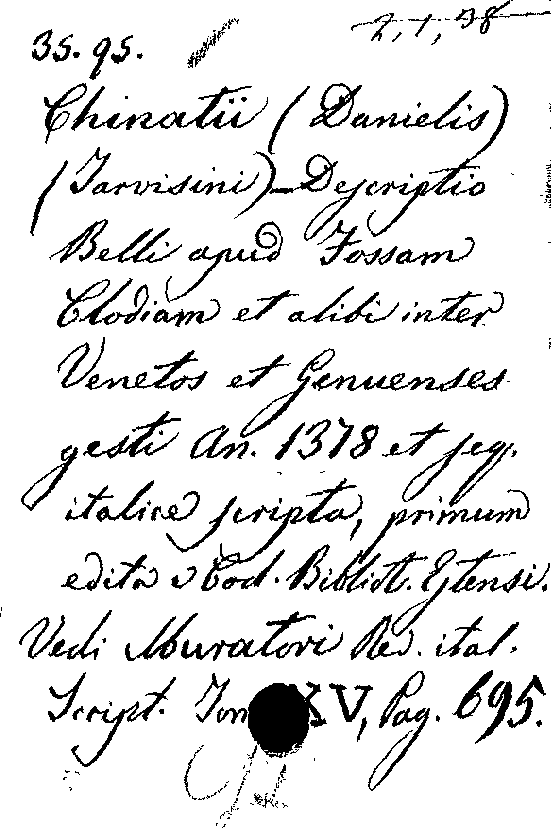 35. 95. 2, 1, 38
Chinatii (Danielis)
(Tarvisini) – Descriptio
Belli apud Fossam
Clodiam et alibi inter
Venetos et Genuenses
gesti An. 1378 et seq.
italice scripta, primum
edita e Cod. Biblioth. Estensi.
Vedi Muratori Rer. ital.
Script. Tom XV, Pag. 695.